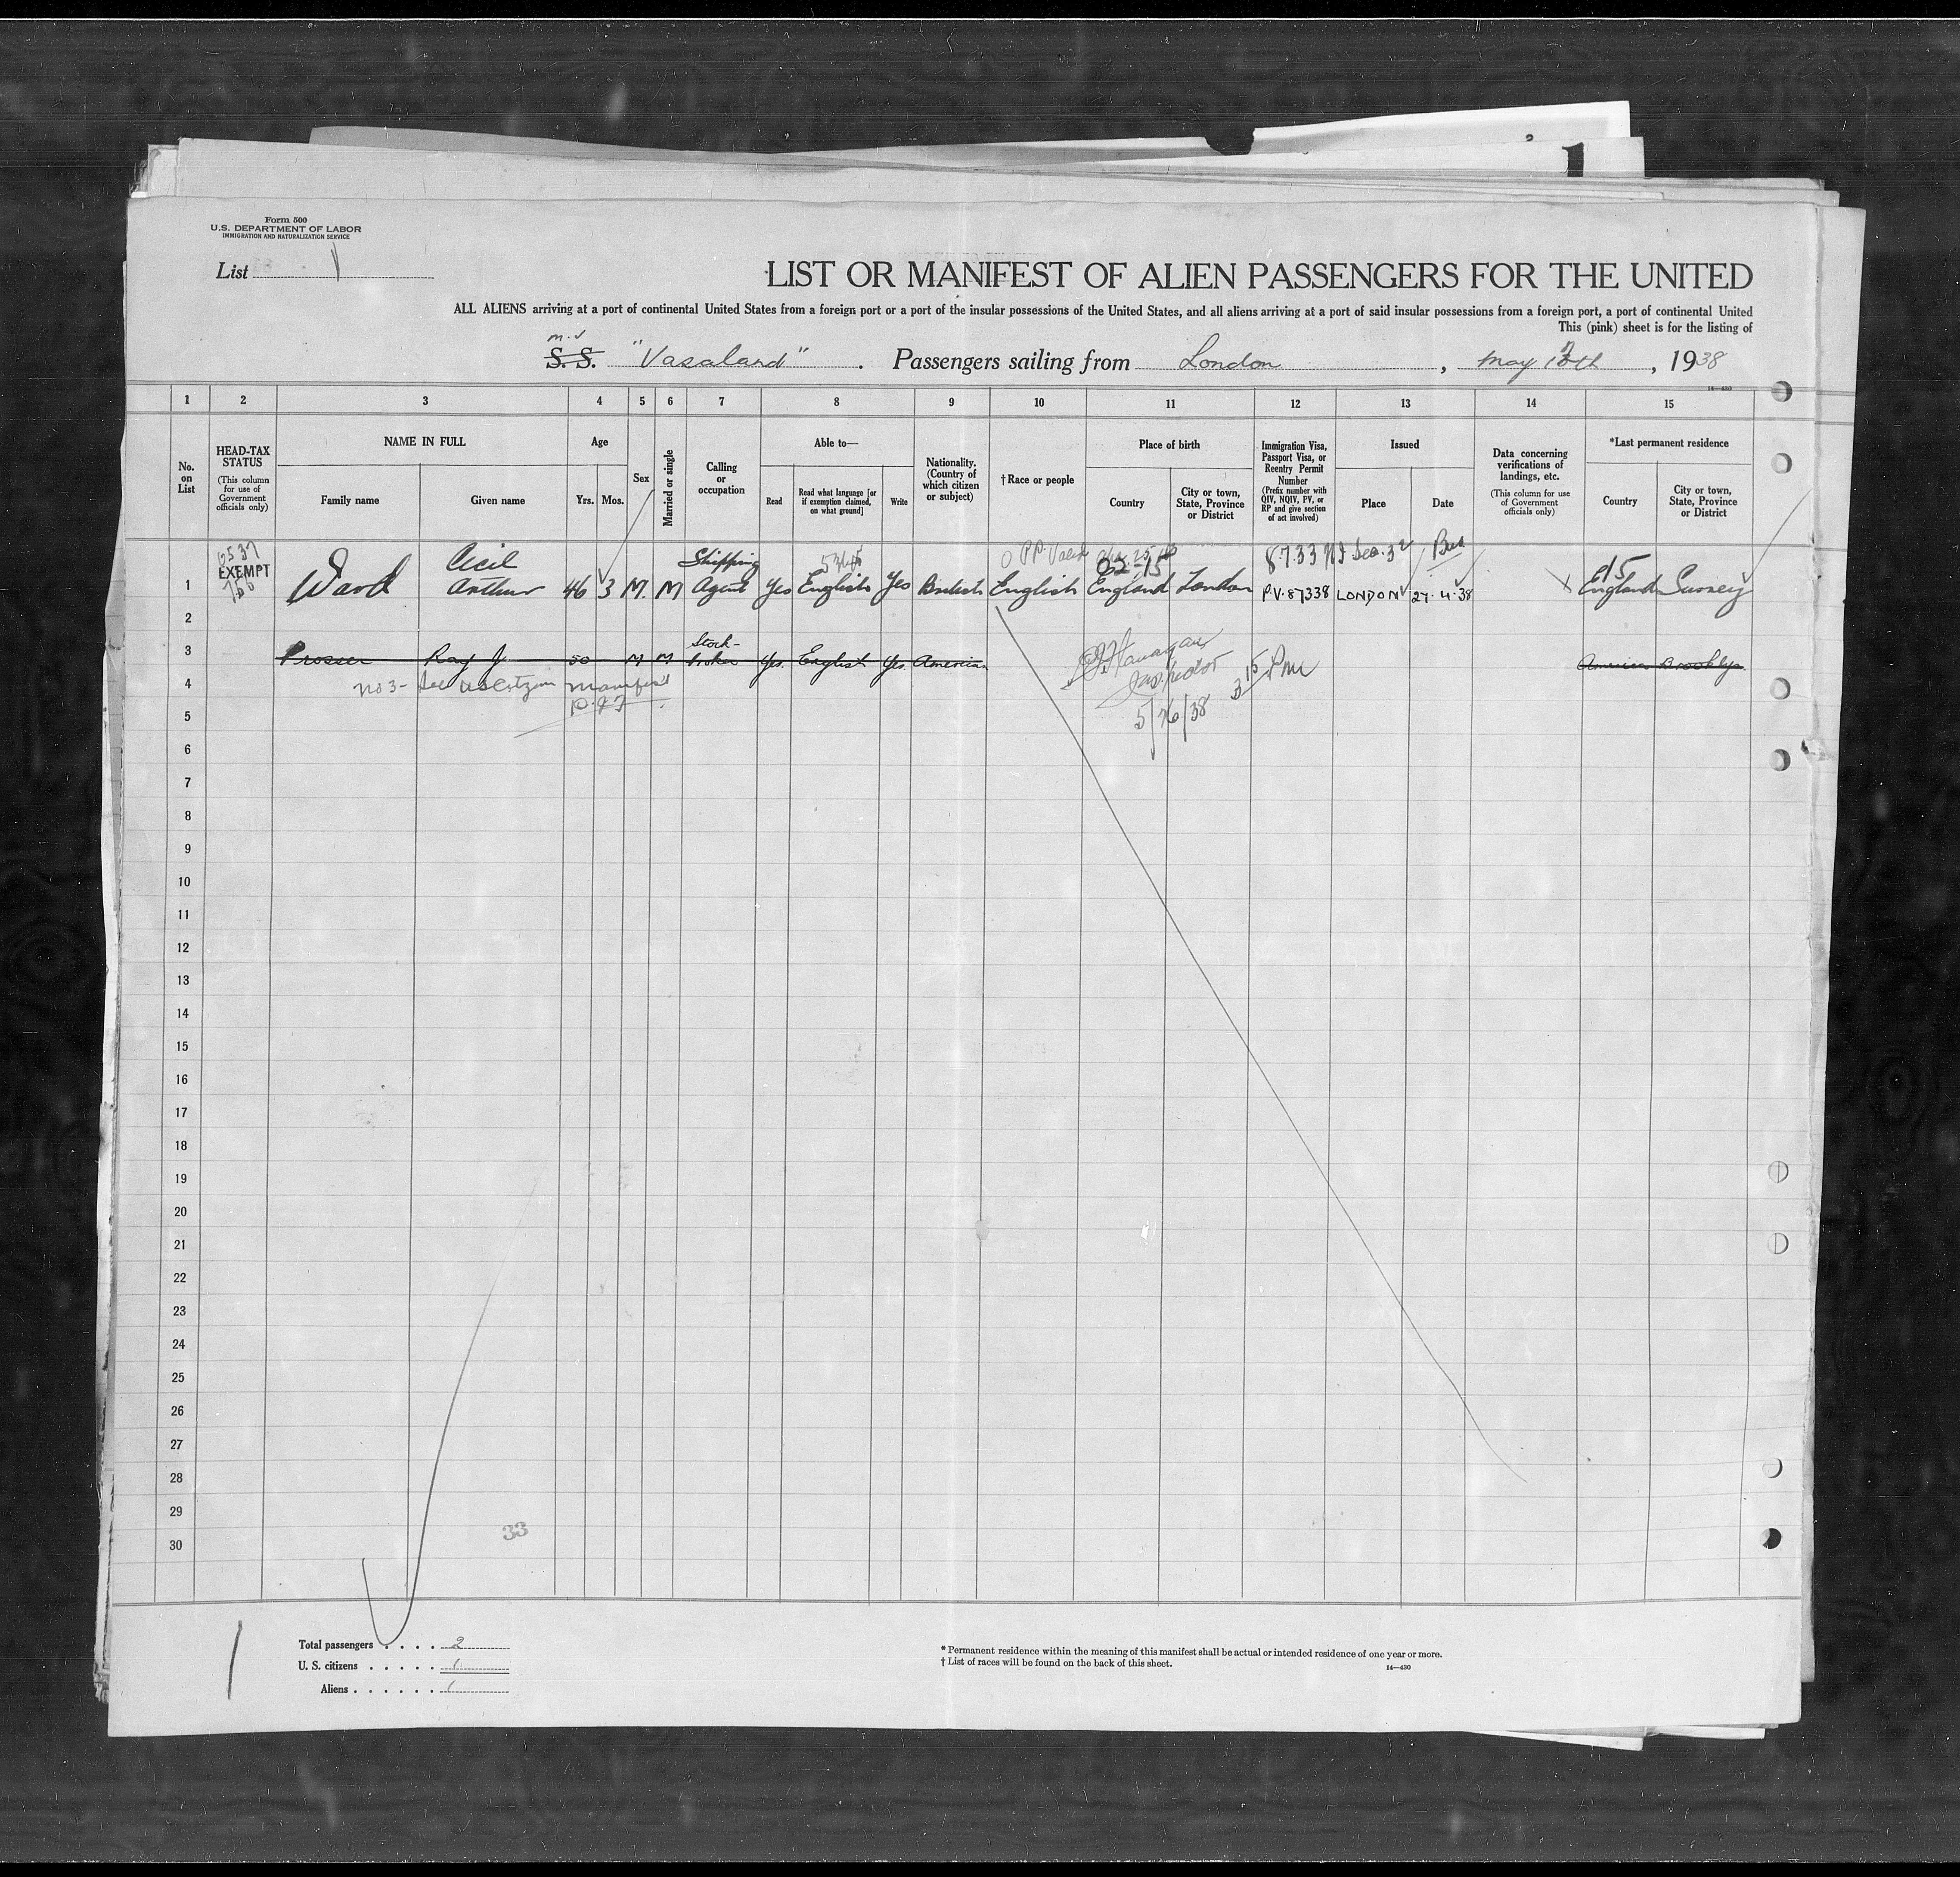 Form 500
U.S. DEPARTMENT OF LABOR
IMMIGRATION AND NATURALIZATION SERVICE
List
LIST OR MANIFEST OF ALIEN PASSENGERS FOR THE UNITED
ALL ALIENS arriving at a port of continental United States from a foreign port or a port of the insular possessions of the United States, and all aliens arriving at a port of said insular possessions from a foreign port, a port of continental United
This (pink) sheet is for the listing of
m.v
S. S. "Vasaland" . Passengers sailing from London , May 13th , 1938
14—430
1 2 3 4 5 6 7 8 9 10 11 12 13 14 15
No. on List
HEAD-TAX STATUS
(This column for use of Government officials only)
NAME IN FULL
Family name Given name
Age
Yrs. Mos.
Sex
Married or single
Calling or occupation
Able to—
Read Read what language [or if exemption claimed, on what ground] Write
Nationality. (Country of which citizen or subject)
†Race or people
Place of birth
Country City or town, State, Province or District
Immigration Visa, Passport Visa, or Reentry Permit Number
(Prefix number with QIV, NQIV, PV, or RP and give section of act involved)
Issued
Place Date
Data concerning verifications of landings, etc.
(This column for use of Government officials only)
*Last permanent residence
Country City or town, State, Province or District
EXEMPT
1 Ward Cecil Arthur 46 3 M. M Shipping Agent Yes English Yes British English England London P.V. 87338 LONDON 27.4.38 England Surrey
2
3 Prosser Ray J 50 M M Stock-broker Yes. English Yes. American America Brooklyn
No 3- See US Citizen Manifest
4
Inspector
5/26/38
3 15 Pm
5
6
7
8
9
10
11
12
13
14
15
16
17
18
19
20
21
22
23
24
25
26
27
28
29
30
33
Total passengers . . . . 2
U. S. citizens . . . . . 1
Aliens . . . . . . 1
* Permanent residence within the meaning of this manifest shall be actual or intended residence of one year or more.
† List of races will be found on the back of this sheet.
14—430